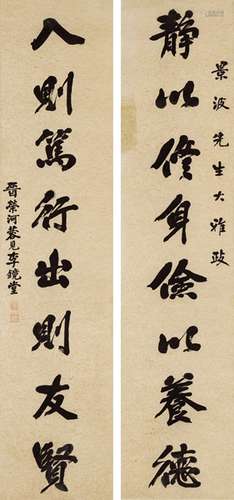 景波先生大雅政
静以修身儉以養德
入則篤行出則友賢
晋榮河蓉見李鏡堂